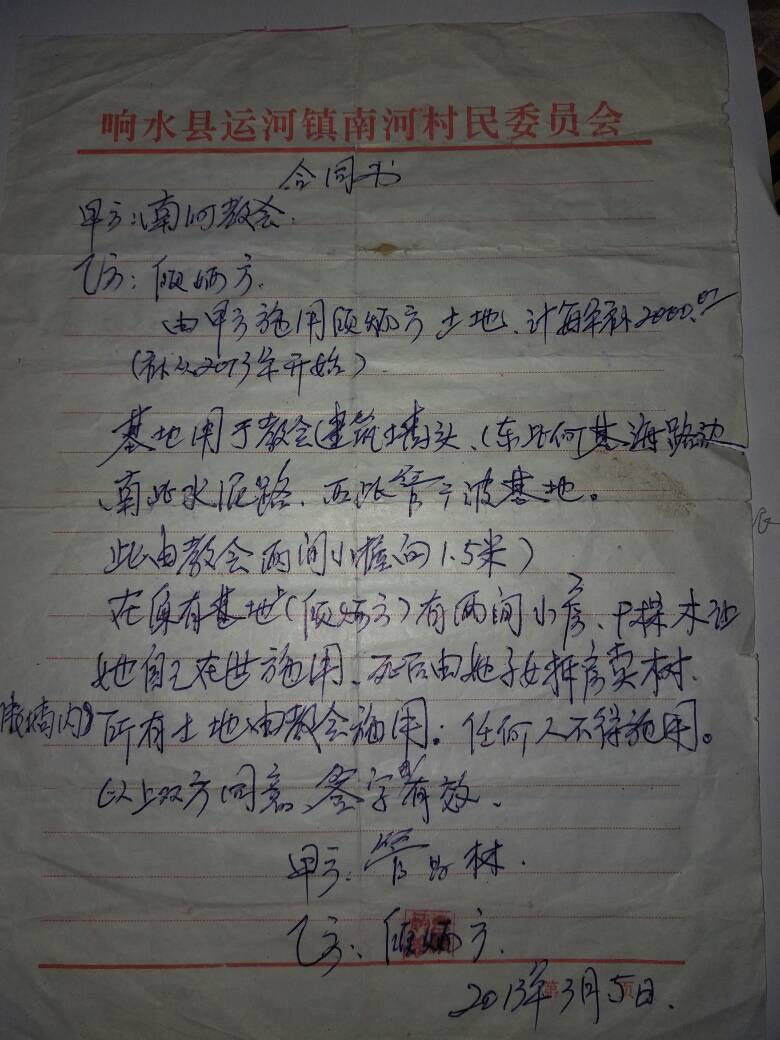 响水县运河镇南河村民委员会
合同书
甲方:南河教会.
乙方:顾炳方.
由甲方施用顾炳方土地、计每年补2000.00
(补从2013年开始)
基地用于教会(建筑墙头、(东北何基海路边
南北水泥路、西北管广波基地。
北由教会两间小屋向1.5米)
在原有基地(顾炳方)有两间小房、木让
她自己在世施用、死后由她子女拆房卖树.
(墙内)所有土地由教会施用。任何人不得施用。
以上双方同意、签字有效、
甲方:管 林.
乙方:顾炳方.
2013年3月5日.
第 页